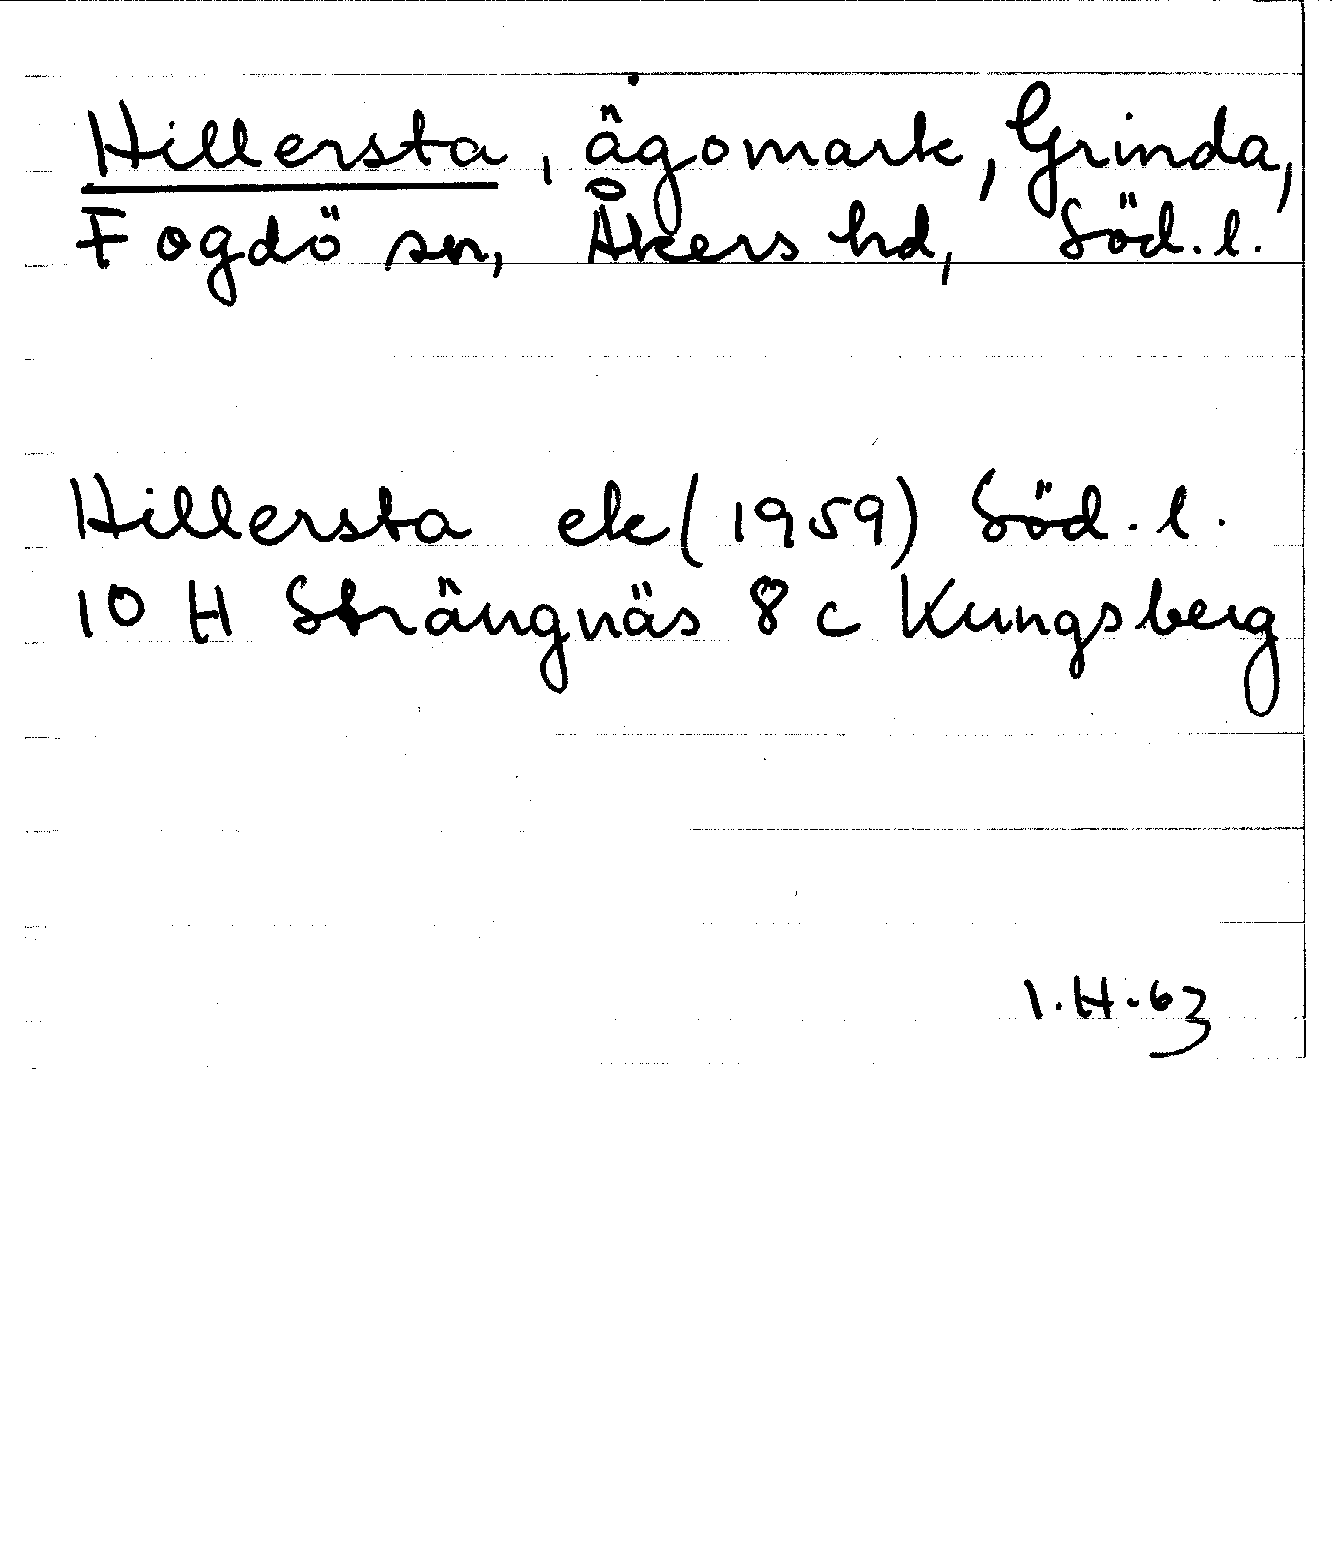 Hillersta, ägomark, Grinda,
Fogdö sn, Åkers hd, Söd. l.
Hillersta ek (1959) Söd. l.
10 H Strängnäs 8 c Kungsberg
I. H. 63